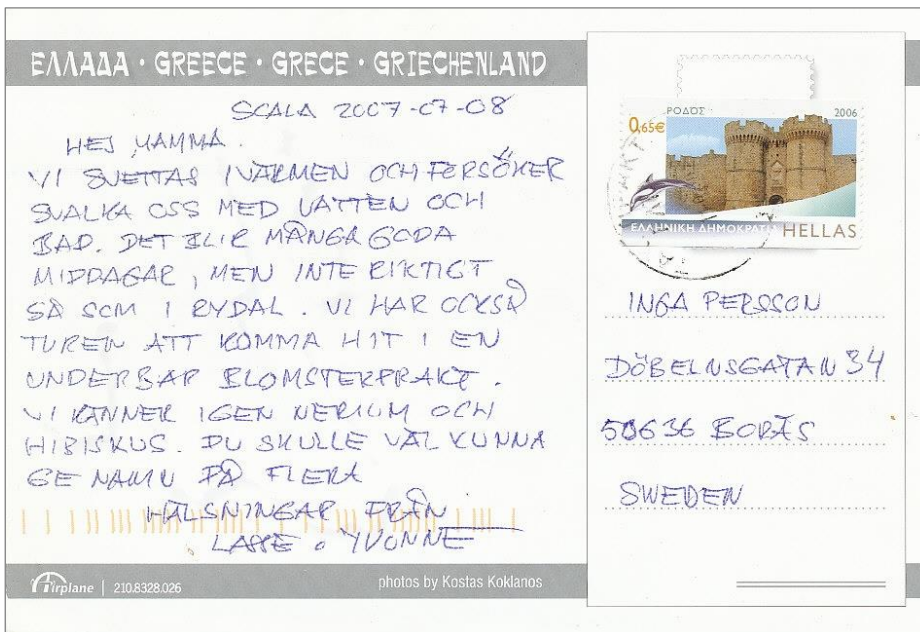 ΕΛΛΑΔΑ · GREECE · GRECE · GRIECHENLAND
SCALA 2007-07-08
HEJ MAMMA.
VI SVETTAS I VÄRMEN OCH FÖRSÖKER
SVALKA OSS MED VATTEN OCH
BAD. DET BLIR MÅNGA GODA
MIDDAGAR, MEN INTE RIKTIGT
SÅ SOM I RYDAL. VI HAR OCKSÅ
TUREN ATT KOMMA HIT I EN
UNDERBAR BLOMSTERPRAKT.
VI KÄNNER IGEN NERIUM OCH
HIBISKUS. DU SKULLE VÄL KUNNA
GE NAMN PÅ FLERA
HÄLSNINGAR FRÅN
LASSE o YVONNE
Airplane | 210.8328.026
photos by Kostas Koklanos
ΡΟΔΟΣ 2006
0,65€
ΕΛΛΗΝΙΚΗ ΔΗΜΟΚΡΑΤΙΑ HELLAS
INGA PERSSON
DÖBELNSGATAN 34
50636 BORÅS
SWEDEN